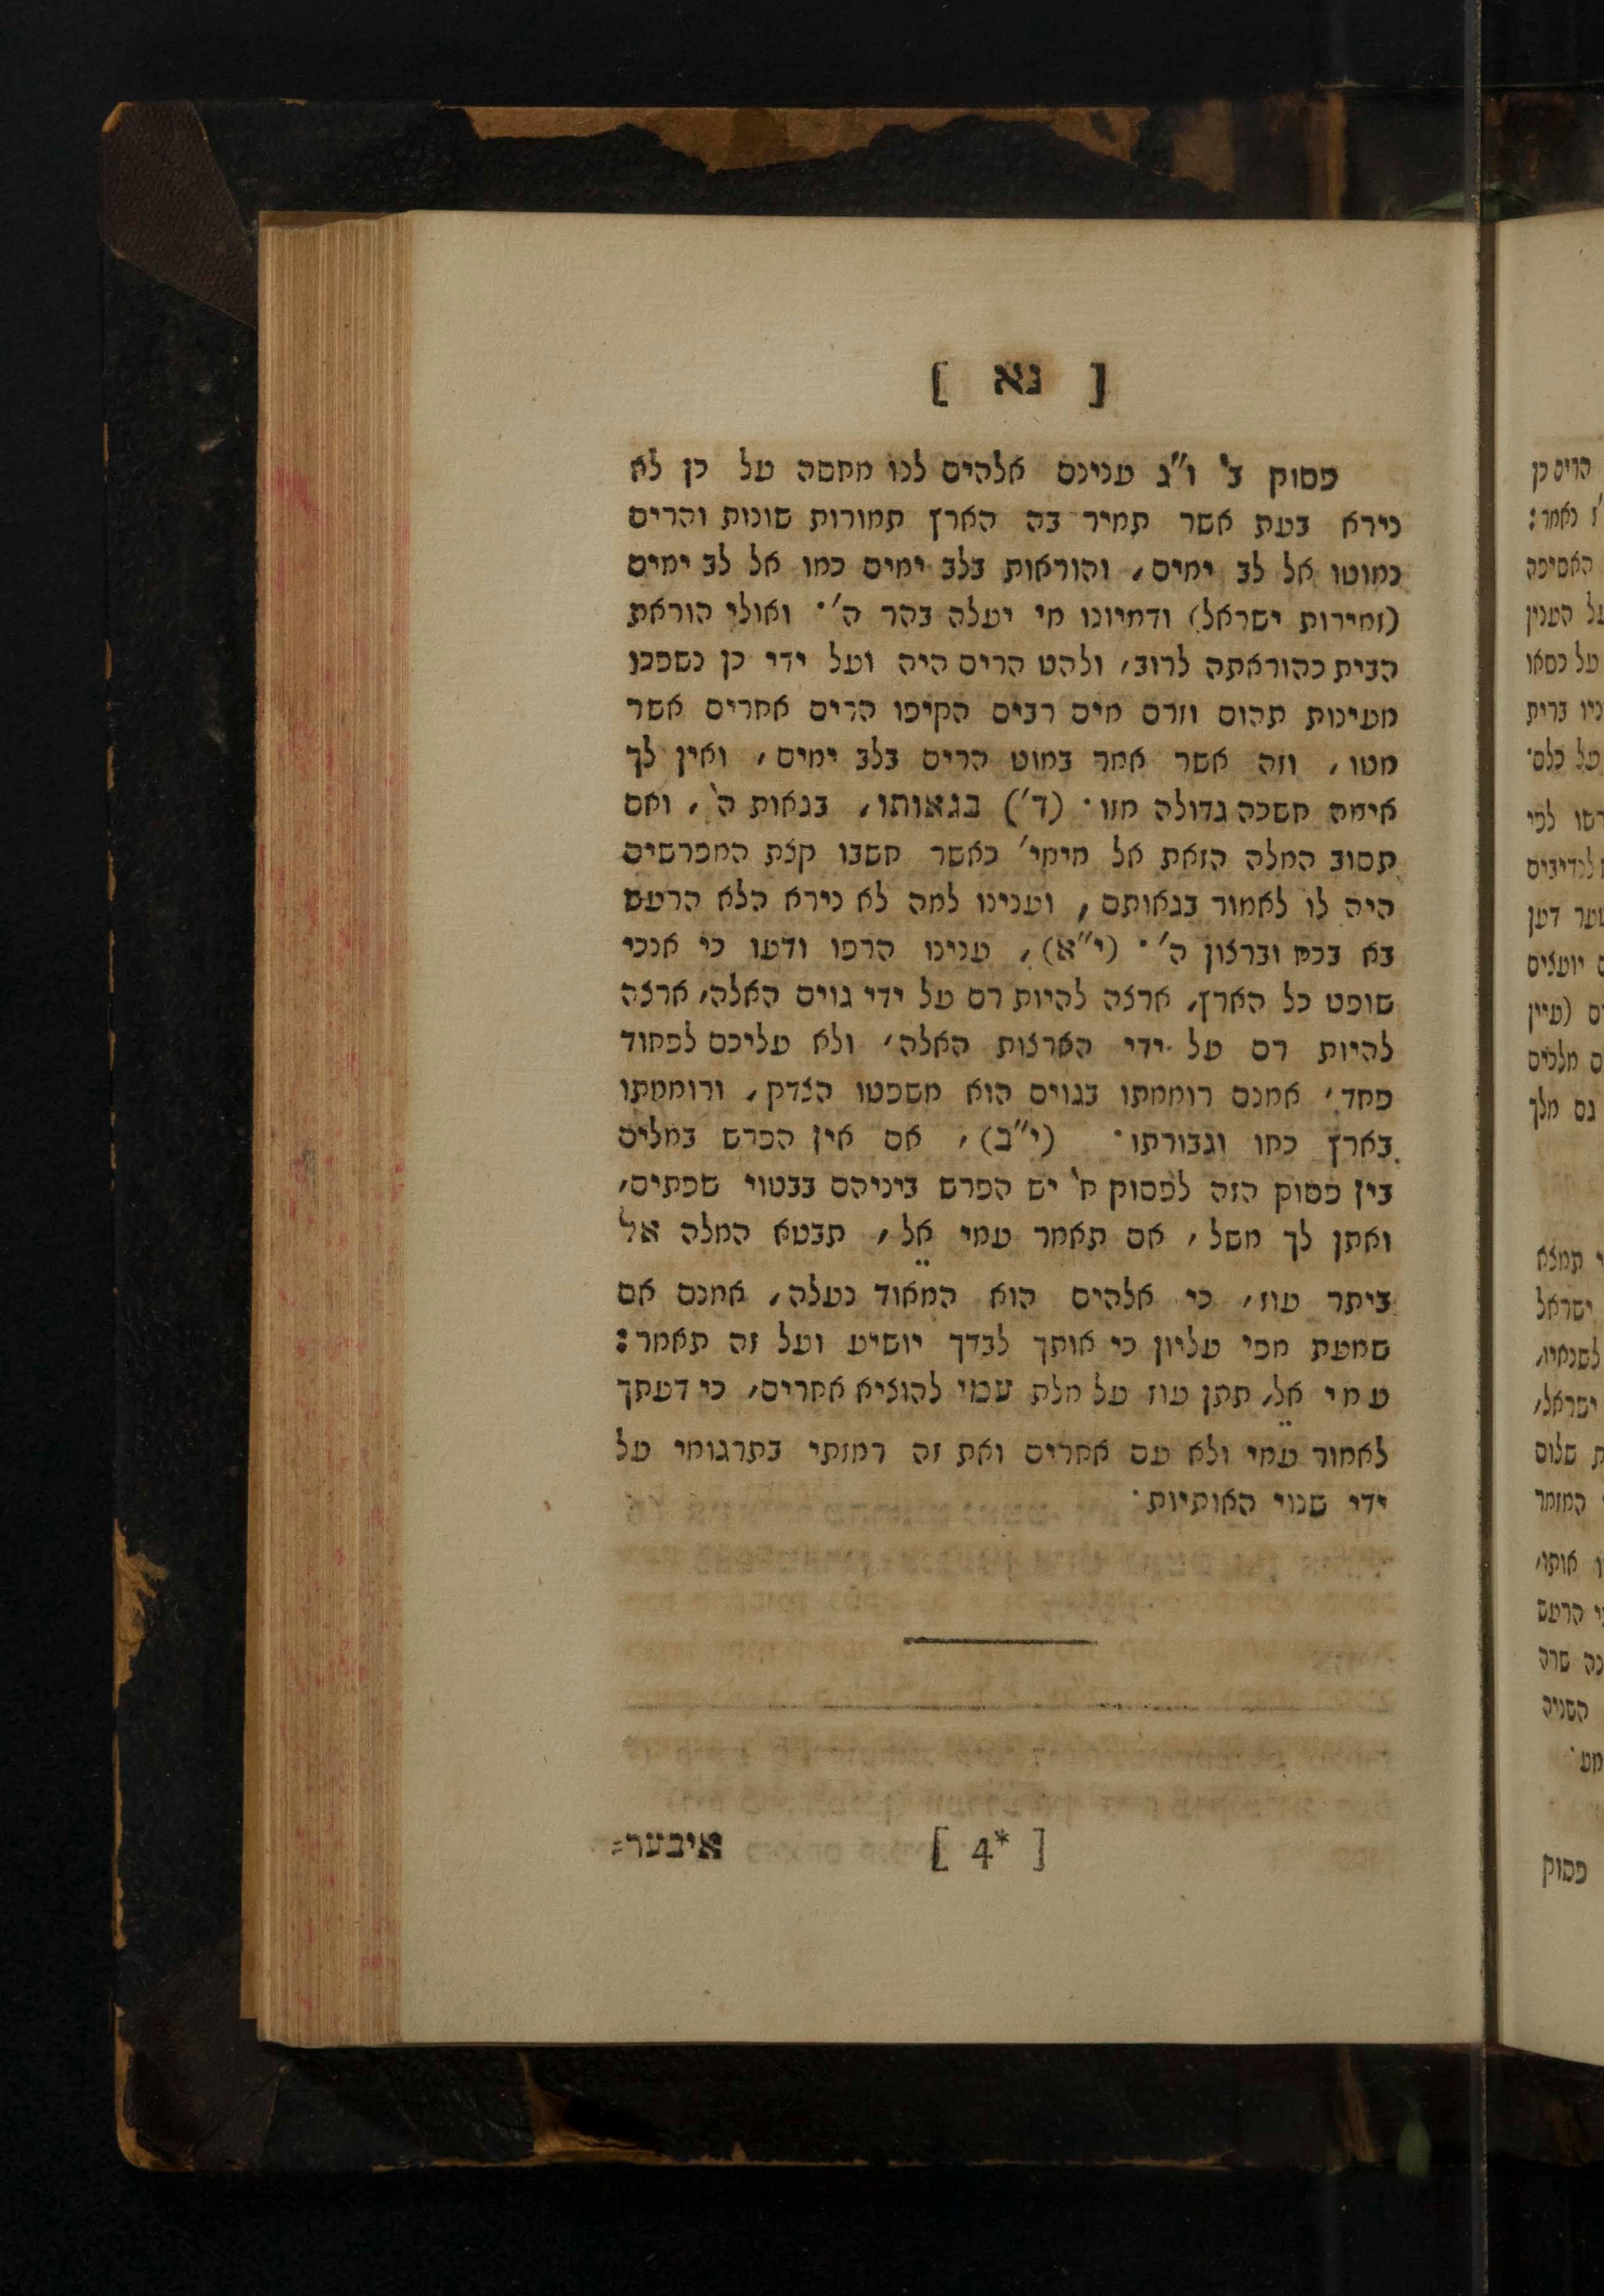 [ נא ]
פסוק ב' ו"ג ענינם אלהים לנו מחסה על כן לא
נירא בעת אשר תמיר בה הארץ תמורות שונות והרים
נמוטו אל לב ימים, והוראות בלב ימים כמו אל לב ימים
(זמירות ישראל) ודמיונו מי יעלה בהר ה'· ואולי הוראת
הבית כהוראתה לרוב, ולהט הרים היה ועל ידי כן נשפכו
מעינות תהום וזרם מים רבים הקיפו הרים אחרים אשר
מטו, וזה אשר אמר במוט הרים בלב ימים, ואין לך
אימה חשכה גדולה מזו· (ד') בגאותו, בגאות ה', ואם
תסוב המלה הזאת אל מימי' כאשר חשבו קצת המפרשים
היה לו לאמור בגאותם, וענינו למה לא נירא הלא הרעש
בא בכח וברצון ה'· (י"א), ענינו הרפו ודעו כי אנכי
שופט כל הארץ, ארצה להיות רם על ידי גוים האלה, ארצה
להיות רם על ידי הארצות האלה, ולא עליכם לפחוד
פחד, אמנם רוממתו בגוים הוא משפטו הצדק, ורוממתו
בארץ כחו וגבורתו· (י"ב), אם אין הפרש במליה
בין פסוק הזה לפסוק ח' יש הפרש ביניהם בבטוי שפתים,
ואתן לך משל, אם תאמר עמי אל, תבטא המלה אל
ביתר עוז, כי אלהים הוא המאוד נעלה, אמנם אם
שמעת מפי עליון כי אותך לבדך יושיע ועל זה תאמר:
עמי אל, תתן עוז על מלת עמי להוציא אחרים, כי דעתך
לאמור עמי ולא עם אחרים ואת זה רמזתי בתרגומי על
ידי שנוי האותיות·
[ 4* ]
איבער=
הרים כן
נאמר:
האסיפה
על הענין
על כסאו
ברית
על כלם·
לפי
לנדיבים
דען
יועצים
(עיין
מלכים
גם מלך
תמצא
ישראל
לשנאיו,
ישראל,
שלום
המזמר
אותו,
הרעש
שרה
השניה
פסוק